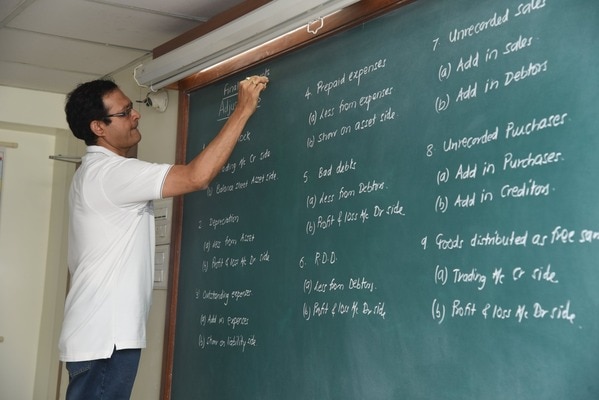 (b) Balance sheet Asset side
2. Depreciation
(a) Less from Asset
(b) Profit & loss A/c side
3. Outstanding expenses
(a) Add in expenses
(b) Show on liability side
4. Prepaid expenses
(a) Less from expenses
(b) Show on asset side.
5 Bad debts
(a) Less from Debtors.
(b) Profit & loss A/c Dr side.
6 R.D.D.
(a) Less from Debtors.
(b) Profit & loss A/c Dr side.
7 Unrecorded sales
(a) Add in sales.
(b) Add in Debtors
8. Unrecorded Purchases.
(a) Add in Purchases.
(b) Add in Creditors.
9 Goods distributed as free
(a) Trading A/c Cr side.
(b) Profit & loss A/c Dr side.